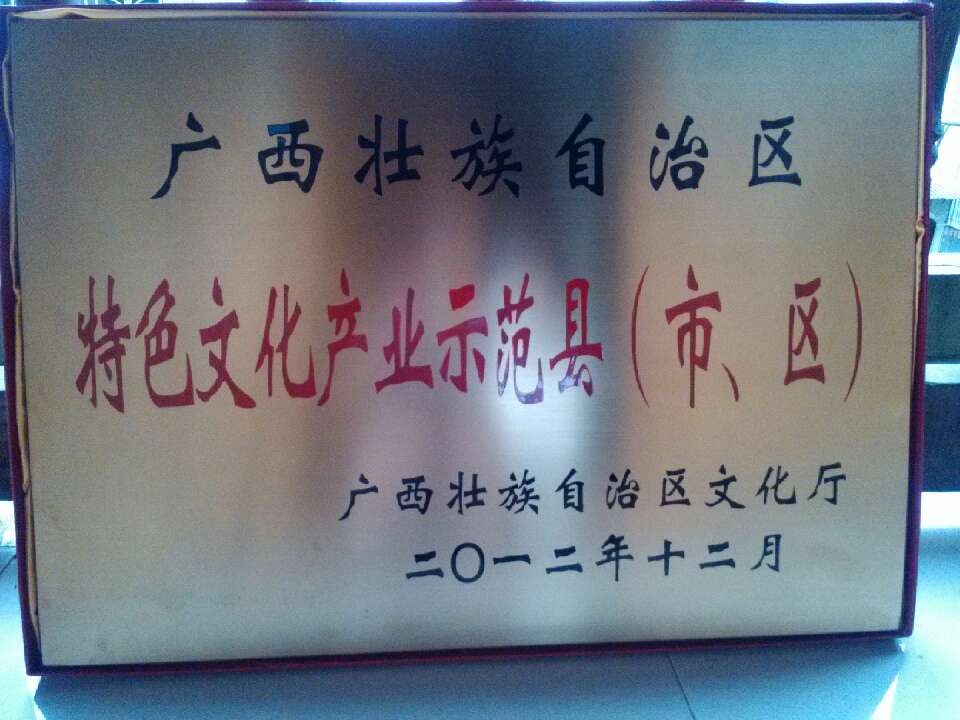 广西壮族自治区
特色文化产业示范县(市、区)
广西壮族自治区文化厅
二〇一二年十二月